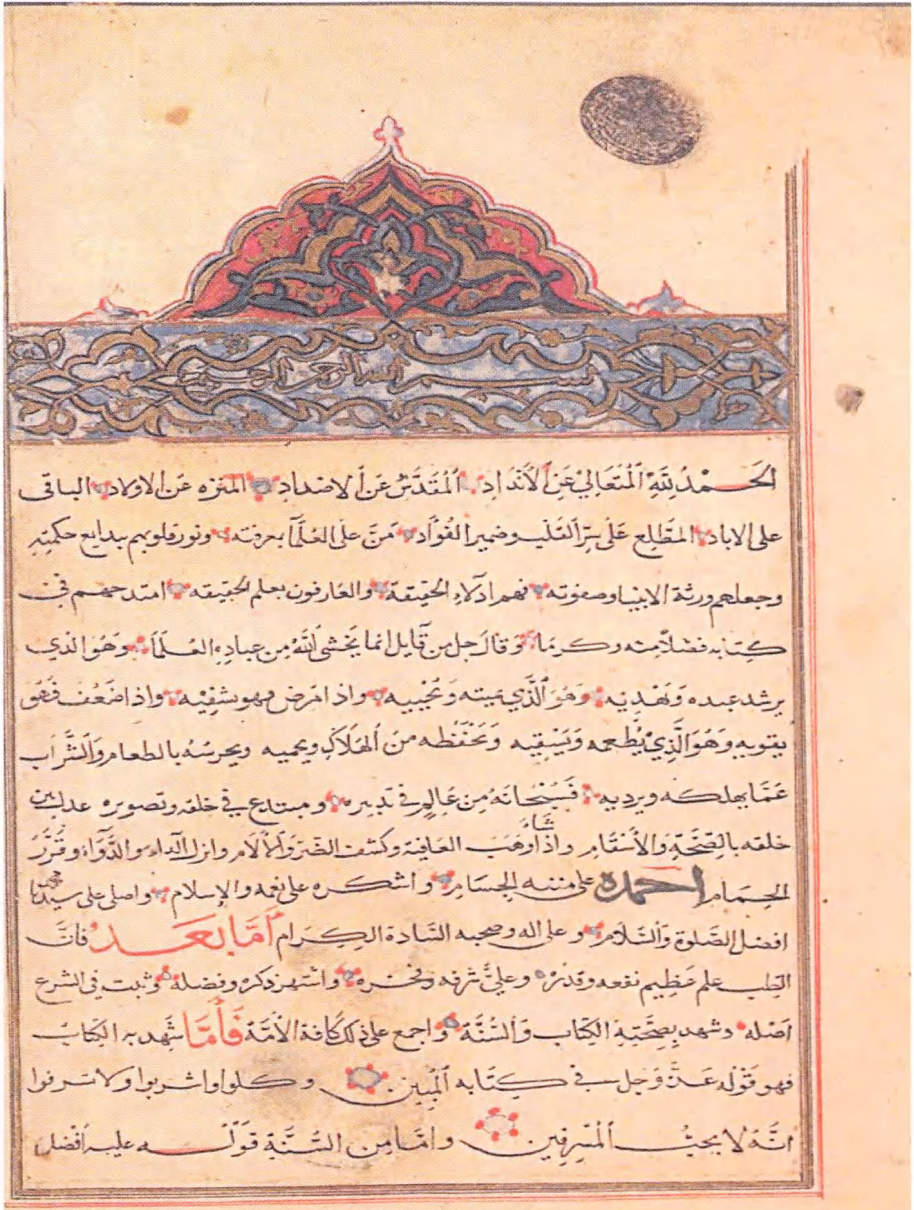 بسم الله الرحمن الرحيم
الحمد لله المتعالي عن الأنداد المقدس عن الاضداد المنزه عن الاولاد الباقي
على الاباد المطلع على سر القلب وضمير الفؤاد من على العلما بمعرفته ونور قلوبهم ببدايع حكمته
وجعلهم ورثة الانبيا وصفوته فهم ادلاء الحقيقة والعارفون بعلم الحقيقه امتدحهم في
كتابه فضلا منه وكرما وقال جل من قايل انما يخشى الله من عباده العلما وهو الذي
يرشد عبده ويهديه وهو الذي يميته ويحييه واذا مرض فهو يشفيه واذا ضعف فهو
يقويه وهو الذي يطعمه ويسقيه ويحفظه من الهلاك ويحميه ويحرسه بالطعام والشراب
عما يهلكه ويرديه فسبحانه من عالم في تدبيره ومبتدع في خلقه وتصويره عدل بين
خلقه بالصحة والأسقام واذا شاء وهب العافية وكشف الضر والألام وانزل الداء والدواء وقدر
الحمام احمده على مننه الجسام واشكره على نعمه والإسلام واصلي على سيدنا محمد
افضل الصلوة والسلام وعلى اله وصحبه السادة الكرام أما بعد فان
الطب علم عظيم نفعه وقدره وعلي شرفه وفخره واشتهر ذكره وفضله وثبت في الشرع
اصله وشهد بصحته الكتاب والسنة واجمع على ذلك كافة الأمة فأما شهد به الكتاب
فهو قوله عز وجل في كتابه المبين وكلوا واشربوا ولا تسرفوا
انه لا يحب المسرفين واما من السنة قوله عليه افضل